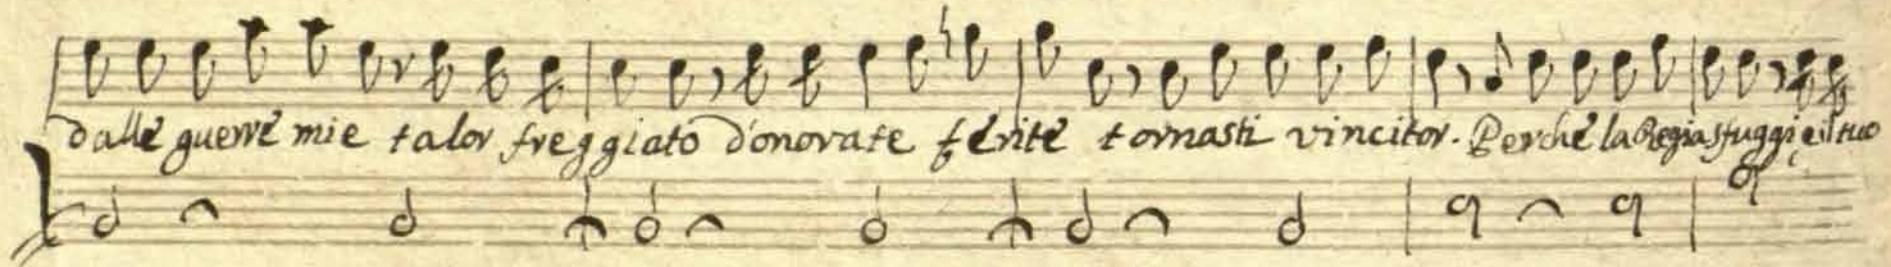 dalle guerre mie talor freggiato d'onorate ferite tornasti vincitor. Perche la Regia sfuggi e il tuo